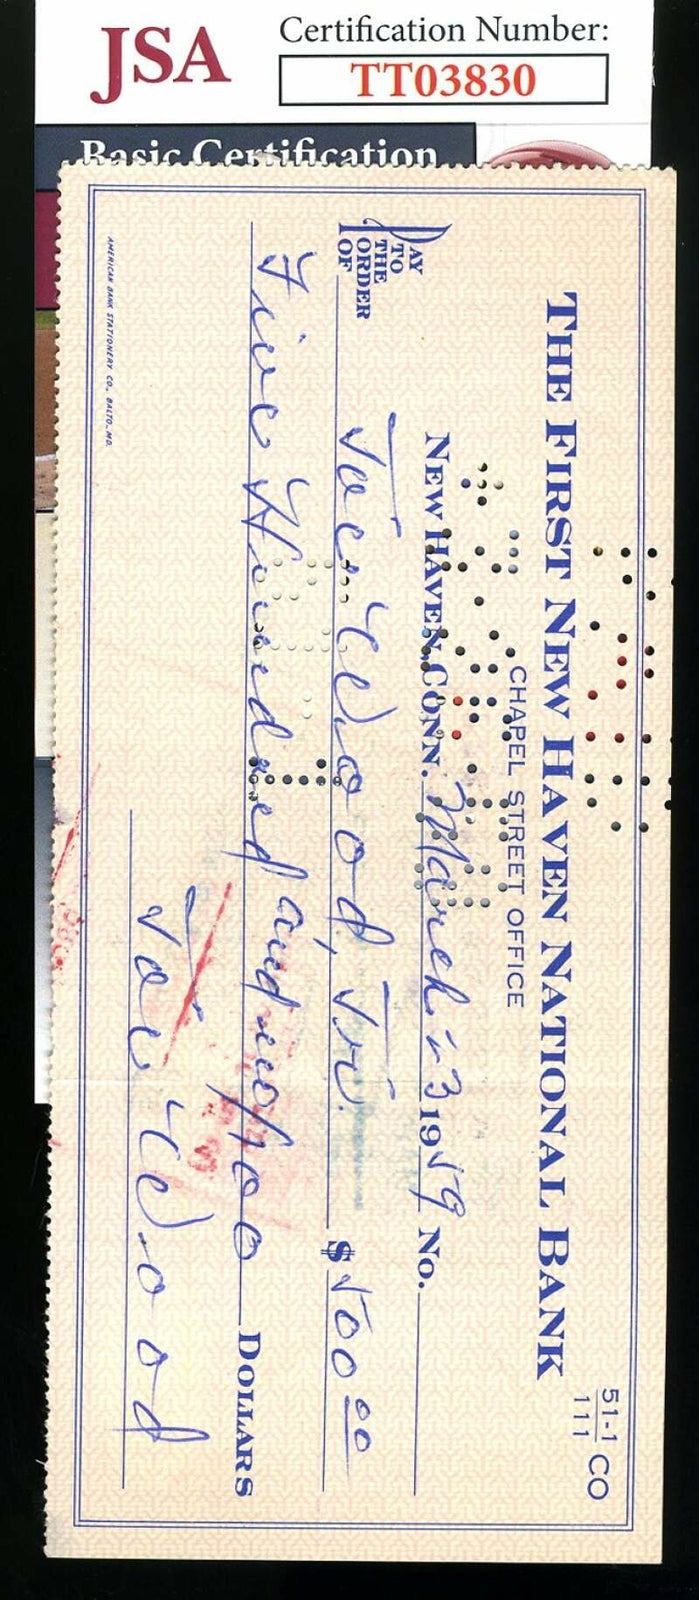 JSA
Certification Number:
TT03830
Basic Certification
THE FIRST NEW HAVEN NATIONAL BANK
51-1
111
CO
CHAPEL STREET OFFICE
NEW HAVEN, CONN. March 23 1959 No.
PAY TO THE ORDER OF Joe Wood, Jr. $ 500 00
Five Hundred and no/100 DOLLARS
Joe Wood
AMERICAN BANK STATIONERY CO., BALTO., MD.